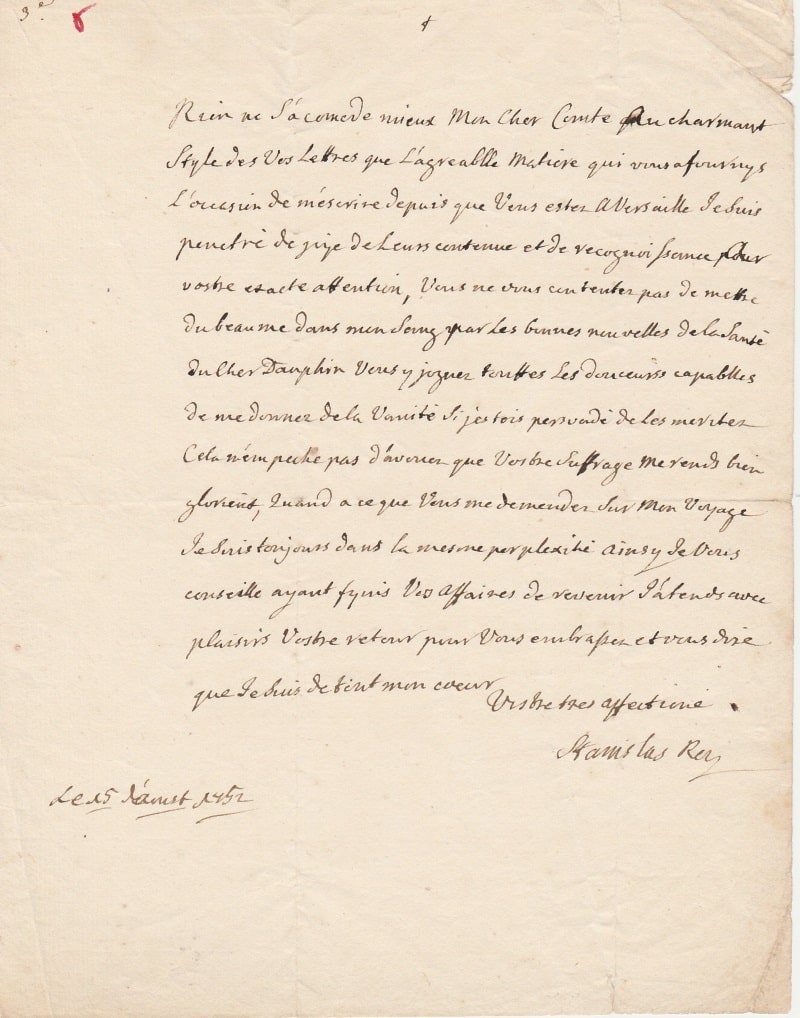 3e.
Rien ne S'acomode mieux Mon Cher Comte au charmant
Style des Vos Lettres que L'agreablle Matiere qui vous a fournys
L'occasien de m'escrire depuis que Vous estez A Versaille Je Suis
penetré de joije de Leurs contenue et de recognoissance pour
vostre exacte attention, Vous ne vous contentez pas de mettre
du beaume dans mon Sang par Les bonnes nouvelles de la Santé
du Cher Dauphin Vous y joignez touttes Les douceurs capablles
de me donnez de la Vanité Si j'estois persvadé de Les meritez
Cela n'empeche pas d'avouez que Vostre Suffrage me rends bien
glorieux, Quand a ce que Vous me demendez Sur Mon Voyage
Je Suis toujours dans la mesme perplexité Ainsy Je Vous
conseille ayant fynis Vos Affaires de revenir J'atends avec
plaisirs Vostre retour pour Vous embrassez et vous dire
que Je Suis de tout mon coeur
Vostre tres affectioné
Stanislas Roy
Le 15 d'aoust 1752